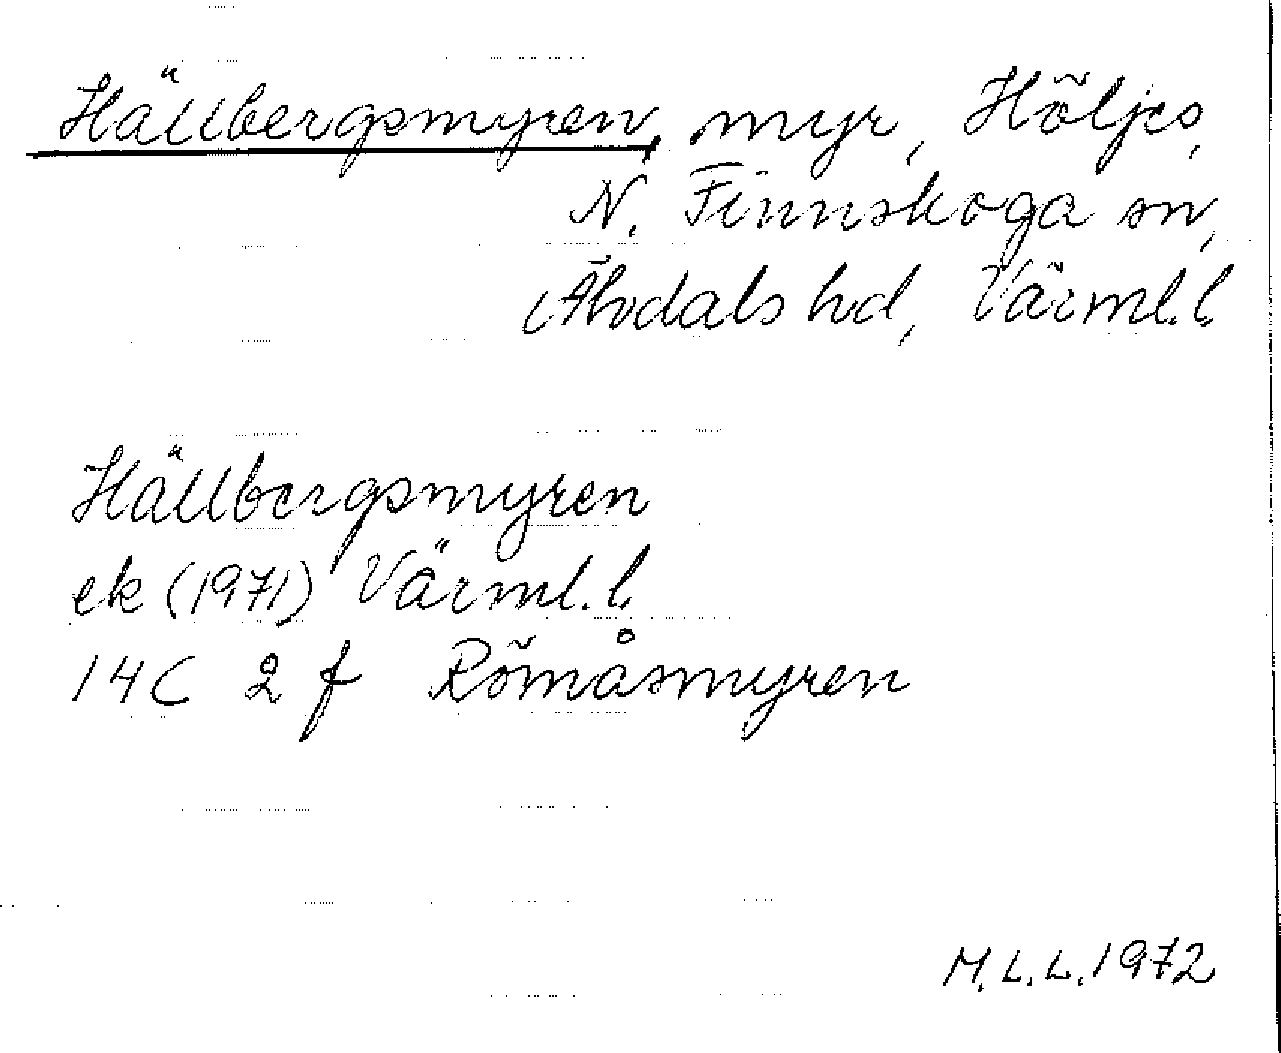 Hällbergsmyren, myr, Höljes,
N. Finnskoga sn,
Älvdals hd, Värml.l.
Hällbergsmyren
ek (1971) Värml.l.
14C 2 f Römåsmyren
M.L.L. 1972